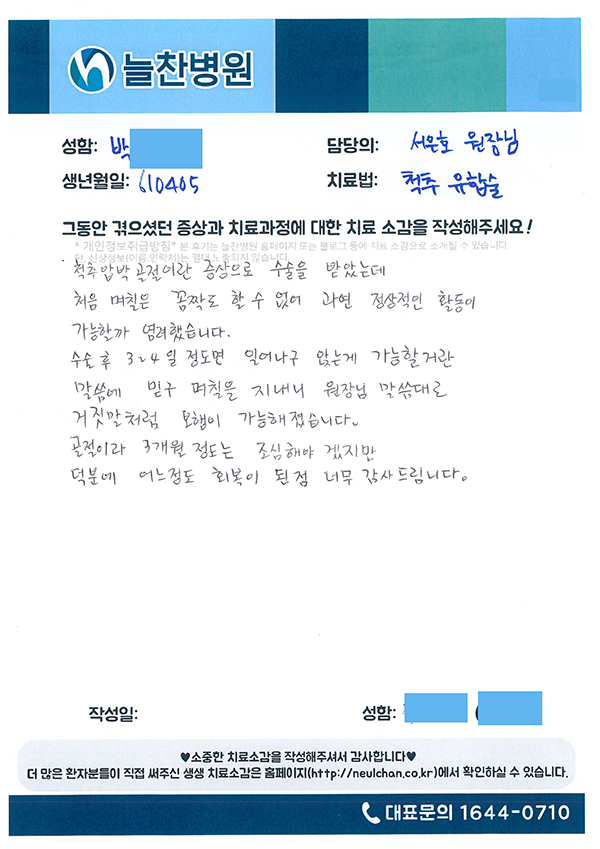 늘찬병원
성함: 박
담당의: 서은호 원장님
생년월일: 610405
치료법: 척추 유합술
그동안 겪으셨던 증상과 치료과정에 대한 치료 소감을 작성해주세요!
* 개인정보취급방침* 본 후기는 늘찬병원 홈페이지 또는 블로그 등에 치료 소감으로 소개될 수 있습니다.
단, 신상정보(이름,연락처)는 절대 노출되지 않습니다.
척추압박골절이란 증상으로 수술을 받았는데
처음 며칠은 꼼짝도 할 수 없어 과연 정상적인 활동이
가능할까 염려했습니다.
수술후 3~4일 정도면 일어나구 앉는게 가능할거란
말씀에 믿구 며칠을 지내니 원장님 말씀대로
거짓말처럼 보행이 가능해졌습니다.
골절이라 3개월 정도는 조심해야 겠지만
덕분에 어느정도 회복이 된점 너무 감사드립니다.
작성일:
성함:
♥소중한 치료소감을 작성해주셔서 감사합니다♥
더 많은 환자분들이 직접 써주신 생생 치료소감은 홈페이지(http://neulchan.co.kr)에서 확인하실 수 있습니다.
대표문의 1644-0710